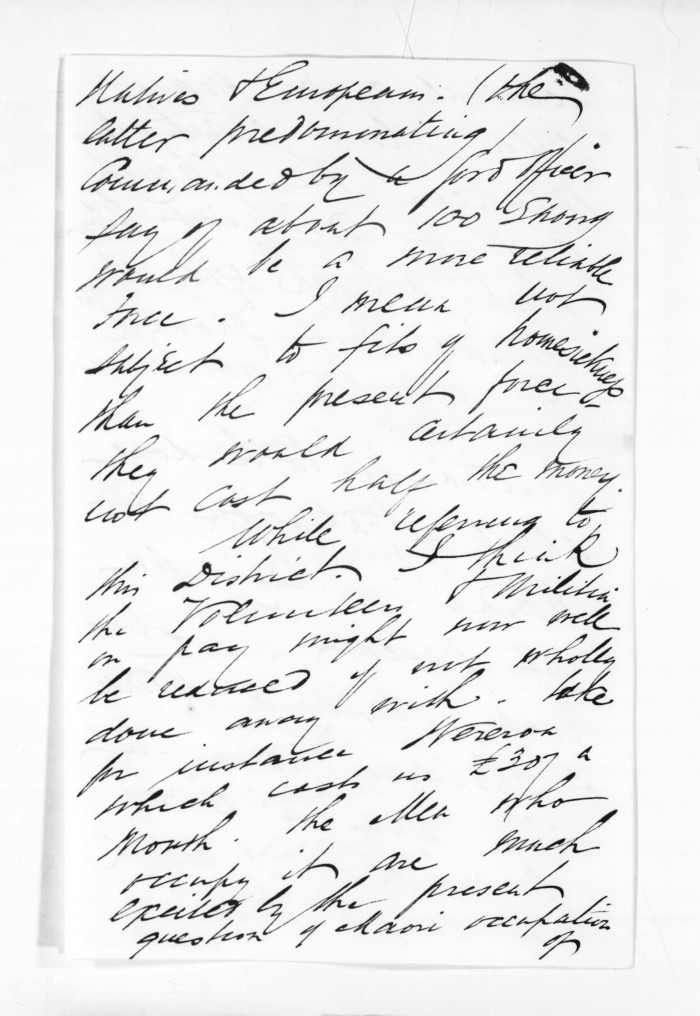 Natives & Europeans. (the
latter predominating)
Commanded by a good officer
say of about 100 Strong
would be a more reliable
force. I mean not
subject to fits of homesickness
than the present force &
they would certainly
not cost half the money.
While referring to
this District. I think
the Volunteers & Militia
on pay might now well
be reduced if not wholly
done away with. take
for instance Wereroa
which costs us £307 a
Month. the Men who
occupy it are much
excited by the present
question of Maori occupation
of